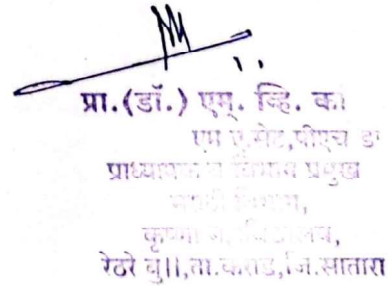 प्रा.(डॉ.) एम्. व्हि. का
एम ए.सेट,पीएच ड
प्राध्यापक व विभाग प्रमुख
मराठी विभाग,
कृष्णा म. विद्यालय,
रेठरे बु||,ता.कराड,जि.सातारा